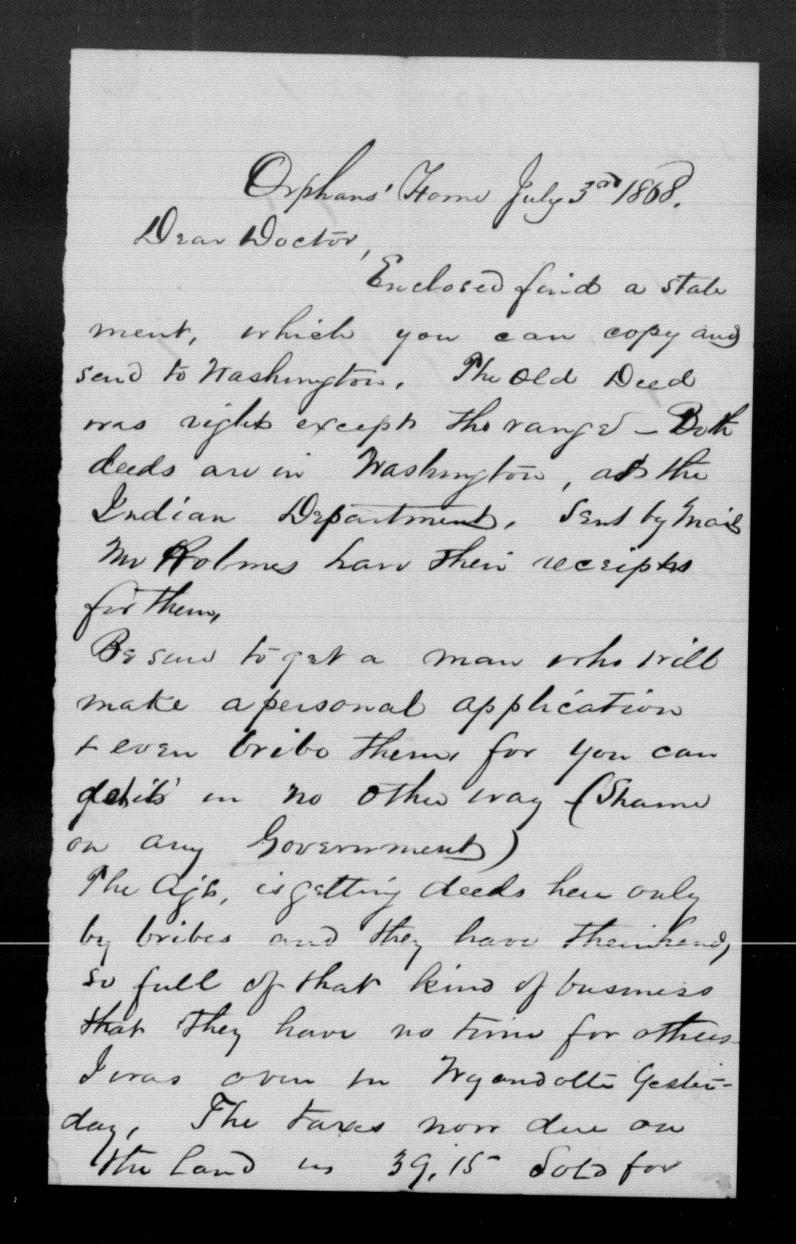 Orphans' Home July 3rd 1868.
Dear Doctor,
Enclosed find a state
ment, which you can copy and
send to Washington. The Old Deed
was right except the range — Both
deeds are in Washington, at the
Indian Department. Sent by Mail
Mr Holmes have their receipts
for them,
Be sure to get a man who will
make a personal application
& even bribe them, for you can
get it in no other way (Shame
on any Government)
The Agt, is getting deeds here only
by bribes and they have their hands
so full of that kind of business
that they have no time for others
I was over in Wyandotte Yester-
day, The taxes now due on
the land is 39,15 Sold for